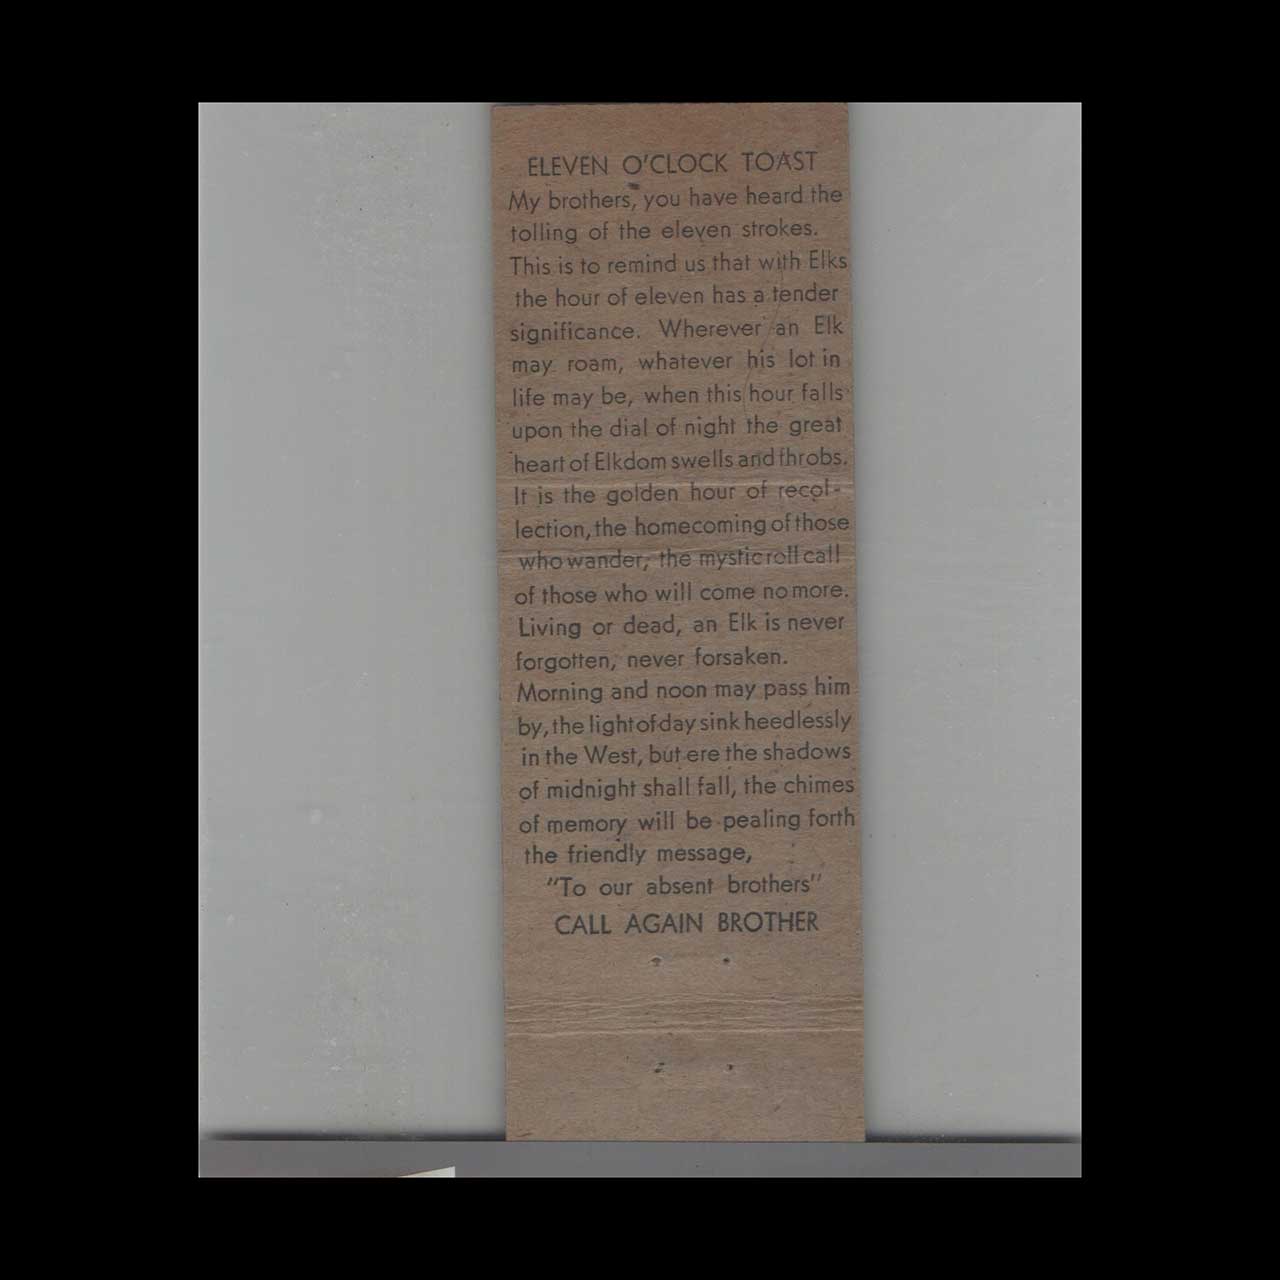 ELEVEN O'CLOCK TOAST
My brothers, you have heard the
tolling of the eleven strokes.
This is to remind us that with Elks
the hour of eleven has a tender
significance. Wherever an Elk
may roam, whatever his lot in
life may be, when this hour falls
upon the dial of night the great
heart of Elkdom swells and throbs.
It is the golden hour of recol-
lection, the homecoming of those
who wander, the mystic roll call
of those who will come no more.
Living or dead, an Elk is never
forgotten, never forsaken.
Morning and noon may pass him
by, the light of day sink heedlessly
in the West, but ere the shadows
of midnight shall fall, the chimes
of memory will be pealing forth
the friendly message,
"To our absent brothers"
CALL AGAIN BROTHER